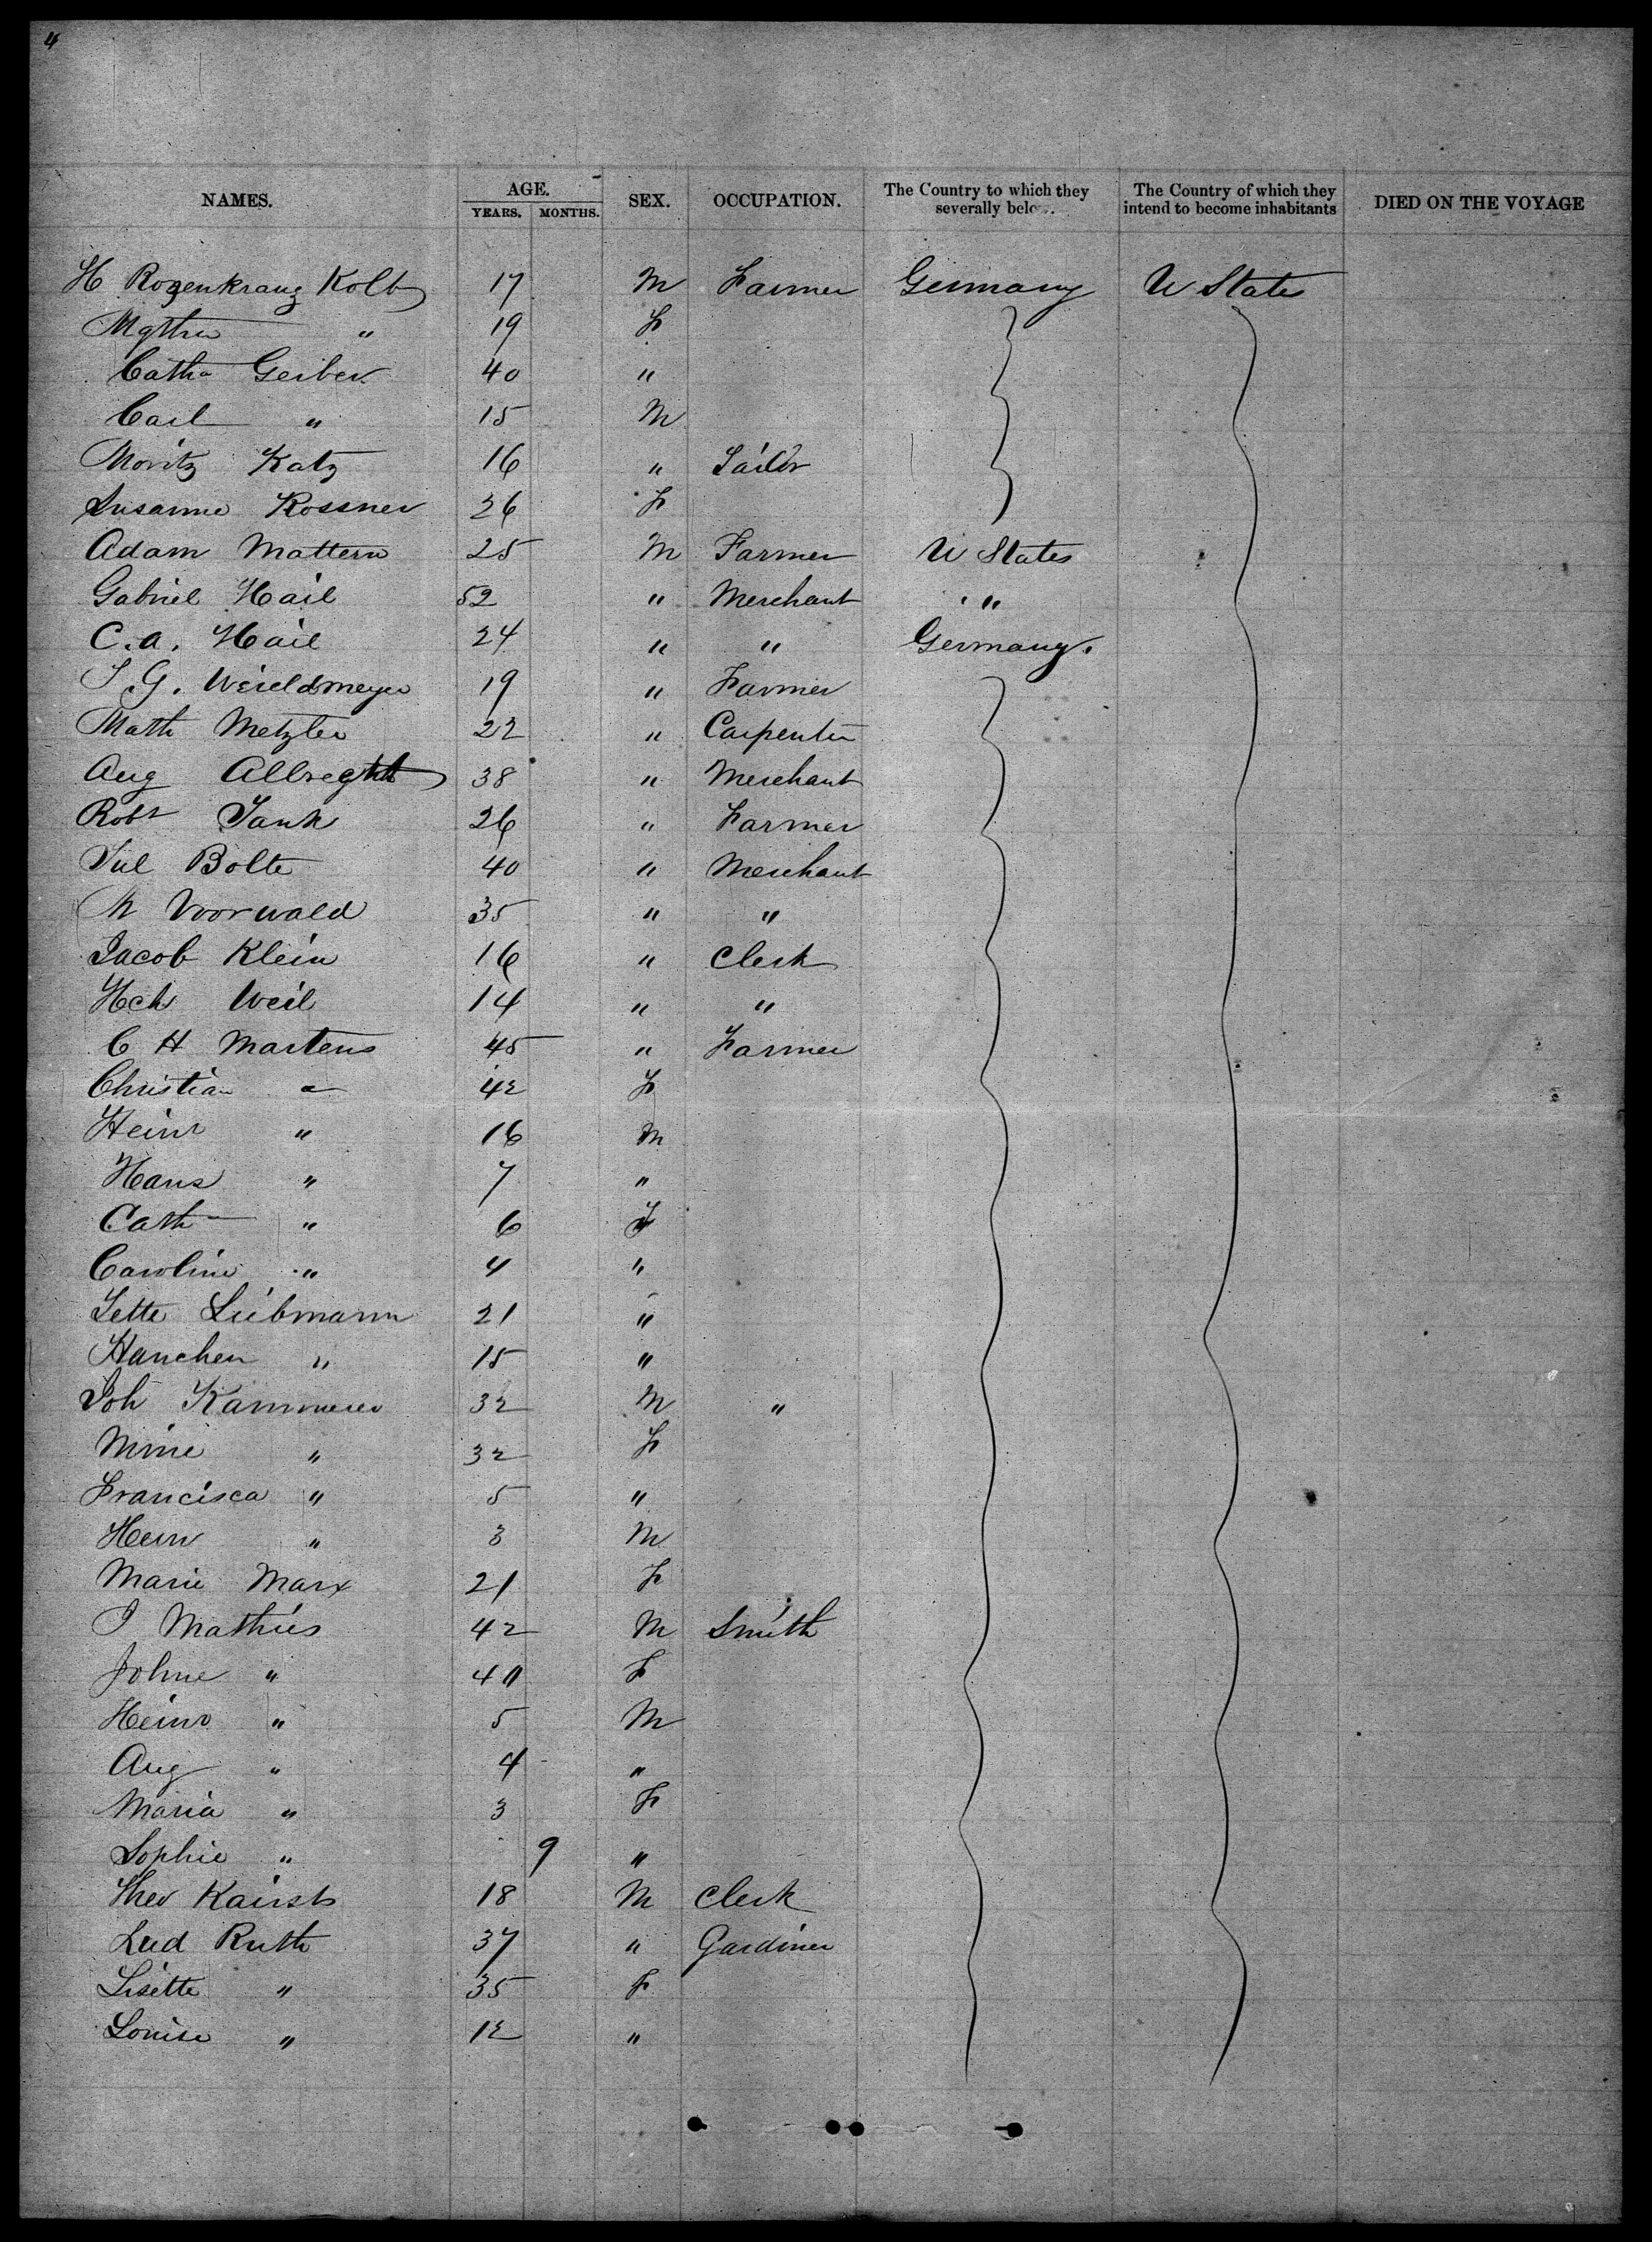 4
NAMES. AGE. SEX. OCCUPATION. The Country to which they severally belo The Country of which they intend to become inhabitants DIED ON THE VOYAGE
YEARS. MONTHS.
H Rozenkranz Kolb 17 M Farmer Germany U States
" 19 F
Cath Gerber 40 "
Carl " 15 M
Moritz Katz 16 " Tailor
Susanne Rossner 26 F
Adam Mattern 25 M Farmer U States
Gabriel Hail 52 " Merchant "
C. a. Hail 24 " " Germany.
G. 19 " Farmer
Math Metzler 22 " Carpenter
Aug Albrecht 38 " Merchant
Robt Tank 26 " Farmer
Jul Bolte 40 " Merchant
M Voorwald 35 " "
Jacob Klein 16 " Clerk
Hch Weil 14 " "
C H Martens 45 " Farmer
Christian " 42 F
Heinr " 16 M
Hans " 7 "
Cath " 6 F
Caroline " 4 "
Jette Liebmann 21 "
Hanchen " 15 "
Joh Kammerer 32 M "
Mine " 32 F
Francisca " 5 "
Heinr " 3 M
Marie Marx 21 F
J Mathies 42 M Smith
Johne " 40 F
Heinr " 5 M
Aug " 4 "
Maria " 3 F
Sophie " 9 "
Theo 18 M Clerk
Lud Ruth 37 " Gardiner
Lisette " 35 F
Louise " 12 "